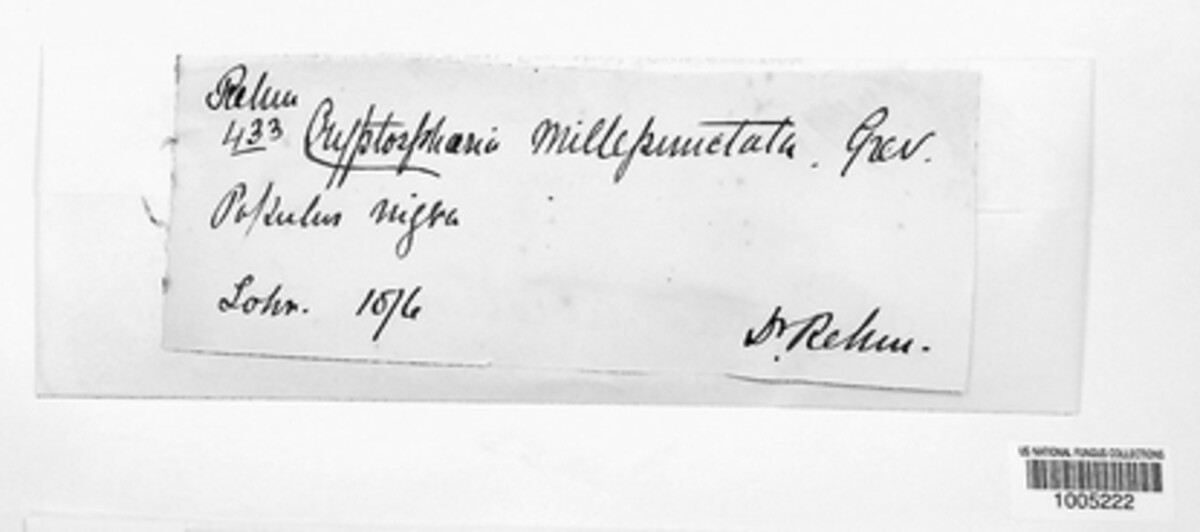 Rehm
433 Cryptosphæria millepunctata. Grev.
Populus nigra
Lohr. 10/6
Dr. Rehm.
US NATIONAL FUNGUS COLLECTIONS
1005222